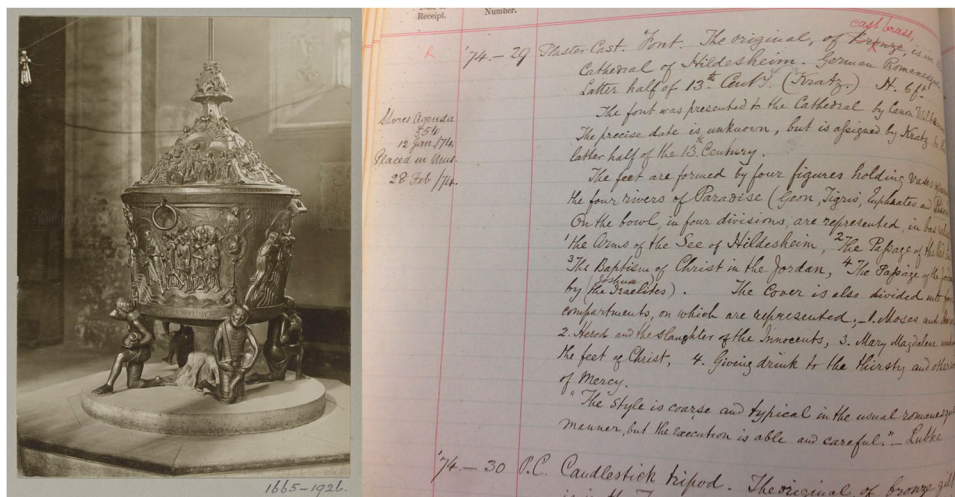 1665-1926.
Receipt.
Number.
cast brass,
'74.—29 Plaster Cast. Font. The original, of Bronze, is in
Cathedral of Hildesheim. German Romanesque
Latter half of 13th Centy. (Kratz.) H. 6ft
The font was presented to the Cathedral by Canon
Stores Agenda
554
12 Jan/74.
Placed in Mus.
28 Feb/74.
The precise date is unknown, but is assigned by Kratz to
latter half of the 13 Century.
The feet are formed by four figures holding vases
the four rivers of Paradise (Geon, Tigris, Euphrates and
On the bowl, in four divisions, are represented, in bas
1 The Arms of the See of Hildesheim, 2 The Passage of the Red
3 The Baptism of Christ in the Jordan, 4 The Passage of the
by (Joshua) (the Israelites). The Cover is also divided into
compartments, on which are represented,— 1. Moses and
2. Herod and the slaughter of the Innocents, 3. Mary Magdalene
the feet of Christ, 4. Giving drink to the thirsty and other
of Mercy.
"The style is coarse and typical in the usual romanesque
manner, but the execution is able and careful."— Lubke
'74.—30 P.C. Candlestick tripod. The original, of bronze gilt
is in the